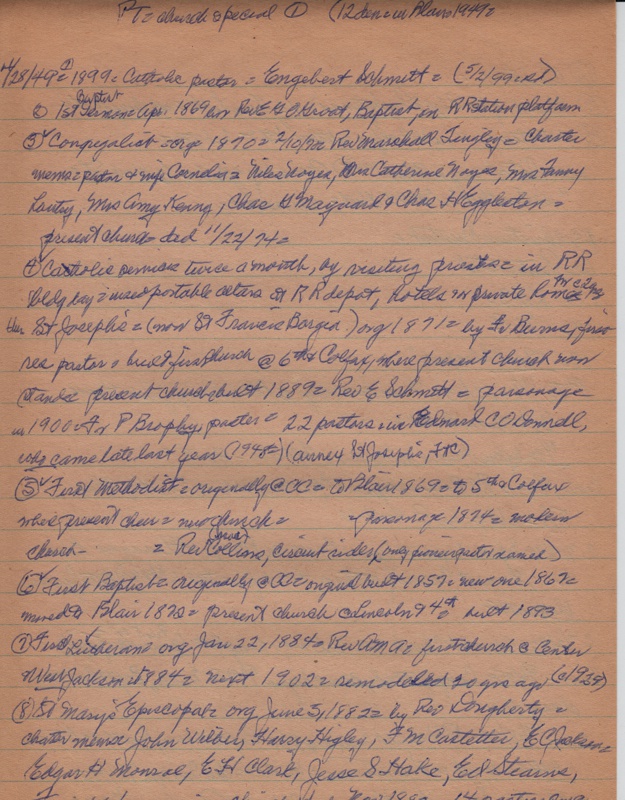 PT = church special ① (12 denom in Blair 1949 =
4/28/49 = ① 1899 = Catholic pastor = Engebert Schmitt = (5/2/99 =
② 1st Baptist Sermon = Apr. 1869 by Rev E G O Groat, Baptist, in RR station platform
③ Congregalist = org 1870 = 2/10/70 Rev Marshall Tingley = Charter
mems = pastor & wife Cornelia = Niles Noyes, Mrs Catherine Noyes, Mrs Fanny
Lantry, Mrs Amy Kenny, Chas H Maynard & Chas H Eggleston =
present church ded 11/22/74 =
④ Catholic services twice a month, by visiting priests = in RR
bldg day = used portable altars at RR depot, hotels or private homes
St Joseph's = (now St Francis Borgia) org 1871 = by Fr Burns, first
res pastor = built first church @ 6th & Colfax, where present church now
stands = present church built 1889 = Rev E Schmitt = parsonage
in 1900 = Fr P Brophy, pastor = 22 pastors = Edward C O'Donnell,
who came late last year (1948 =) (annex St Joseph's, FtC)
⑤ First Methodist = originally @ DC = to Blair 1869 = to 5th & Colfax
where present = new church = parsonage 1874 = modern
church - = Rev Collins, circuit rider, (only pioneer pastor named)
⑥ First Baptist = originally @ DC = original built 1857 = new one 1867 =
moved to Blair 1870 = present church @ Lincoln & 4th = built 1893
⑦ First Lutheran = org Jan 22, 1884 = Rev = first church @ Center
West Jackson = 1884 = next 1902 = remodeled 20 yrs ago (c 1929)
⑧ St Mary's Episcopal = org June 5, 1882 = by Rev Dougherty =
charter mems John Wilber, Harry Higley, F M Castetter, E C Jackson =
Edgar H Monroe, E H Clark, Jesse S Hake, Ed Stearns,